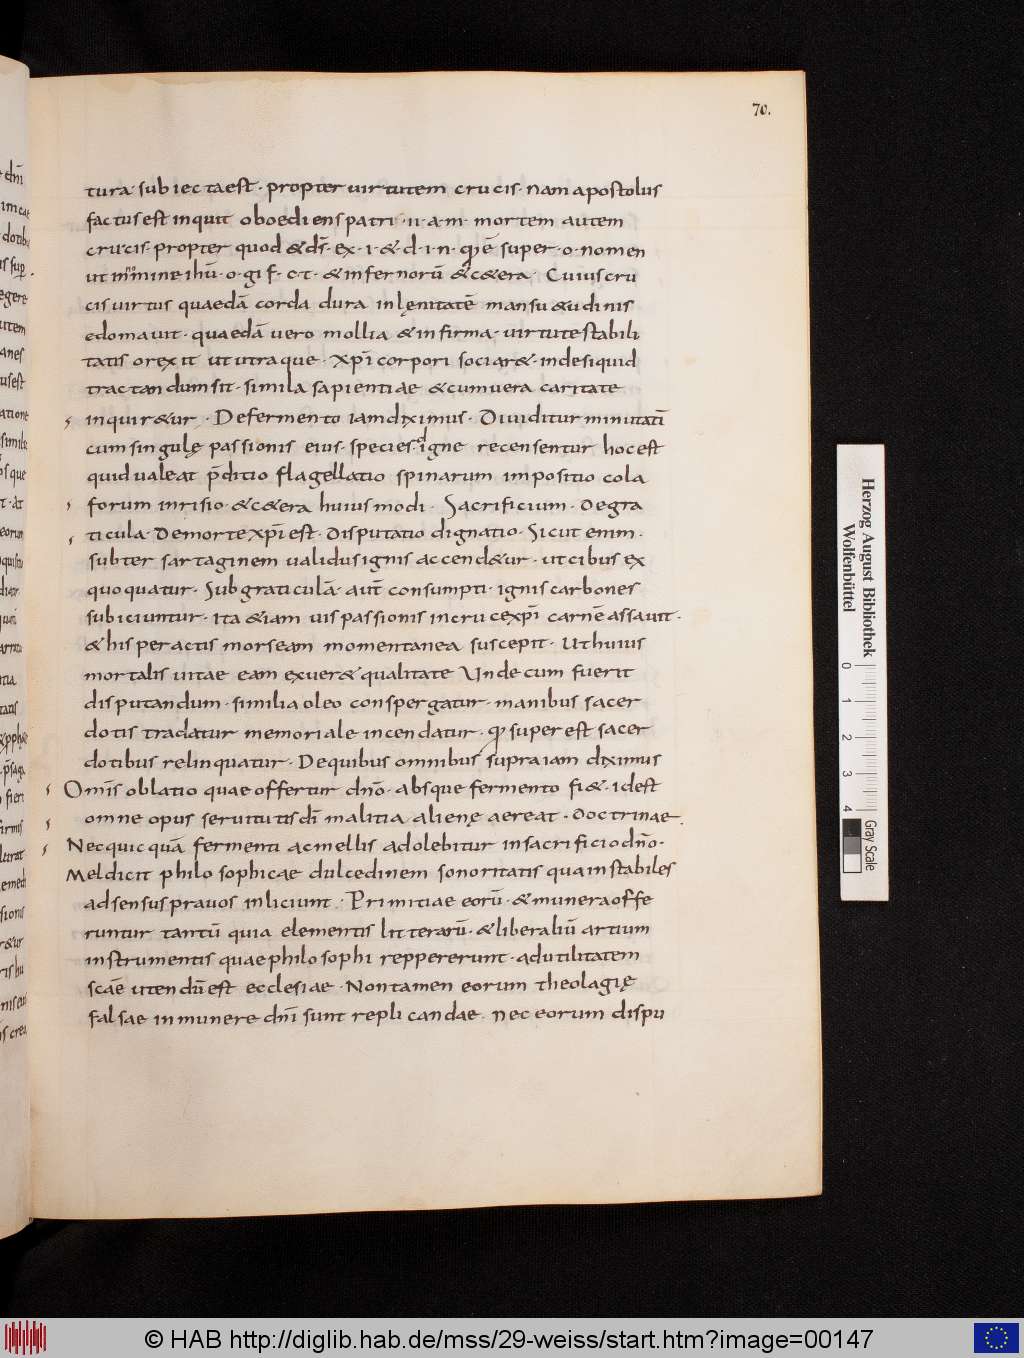 70.
tura subiecta est · propter uirtutem crucis · nam apostolus
factus est inquit oboediens patri · u · a · m · mortem autem
crucis · propter quod & ds̄ · ex · i · & · d · i · n · super · o · nomen
ut nomine ihū · o · g f · c · t · & infernorū & c&era · Cuius cru
cis uirtus quaedā corda dura in lęnitatē mansu&udinis
edomauit · quaedā uero mollia & infirma · uirtute stabili
tatis orexit ut utraque · xp̄i corpori sociar& · inde siquid
tractandum sit · simila sapientiae & cum uera caritate
inquir&ur · De fermento iam diximus · Diuiditur minutatī
cum singulę passionis eius · species · digne recensentur hoc est
quid ualeat p̄ditio flagellatio spinarum impositio cola
forum inrisio · & c&era huiusmodi · Sacrificium · de gra
ticula · De morte xp̄i est · Disputatio dignatio · Sicut enim ·
subter sartaginem ualidus ignis accend&ur · ut cibus ex
quoquatur · Sub graticulā · aut̄ consumpti · ignis carbones
subiciuntur · ita & iam uis passionis in cruce xp̄i carnē assauit ·
& his peractis morseam momentanea suscepit · Ut huius
mortalis uitae eam exuer& qualitate Unde cum fuerit
disputandum · similia oleo conspergatur · manibus sacer
dotis tradatur memoriale incendatur · superest sacer
dotibus relinquatur · De quibus omnibus supra iam diximus
Omīs oblatio quae offertur dn̄o · absque fermento fi& · id est
omne opus seruitutis dī malitia alienę aereat · doctrinae
Nec quicquā fermenti ac mellis adolebitur in sacrificio dn̄o ·
Mel dicit philosophicae dulcedinem sonoritatis qua instabiles
ad sensus prauos inliciunt · Primitiae eorū · & munera offe
runtur tantū quia elementis litterarū · & liberaliū artium
instrumentis quae philosophi reppererunt · ad utilitatem
scāe utendū est ecclesiae · Non tamen eorum theolagię
falsae in munere dn̄i sunt replicandae · nec eorum dispu
Herzog August Bibliothek
Wolfenbüttel
0 1 2 3 4
Gray Scale
© HAB http://diglib.hab.de/mss/29-weiss/start.htm?image=00147